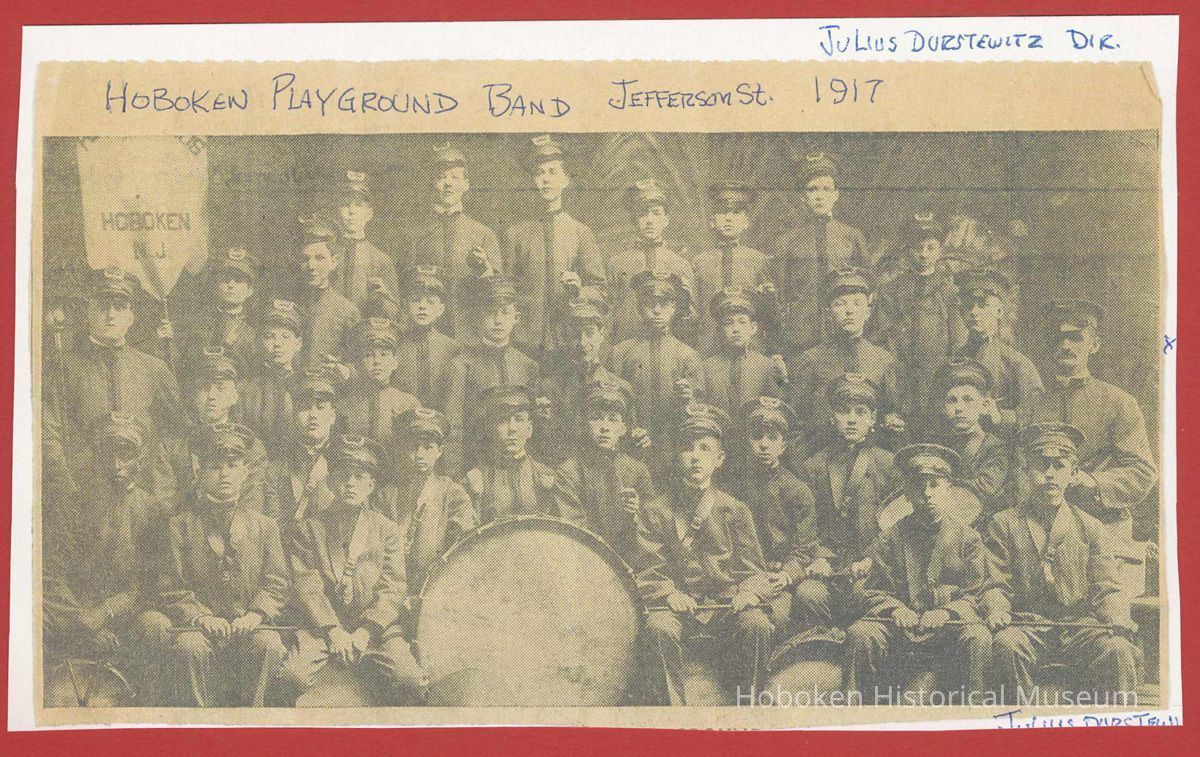 JULIUS DURSTEWITZ DIR.
HOBOKEN PLAYGROUND BAND JEFFERSON ST. 1917
HOBOKEN
N.J.
X
Hoboken Historical Museum
JULIUS DURSTEWI